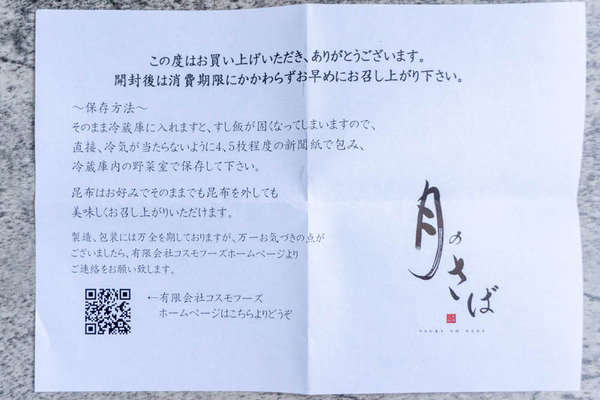 この度はお買い上げいただき、ありがとうございます。
開封後は消費期限にかかわらずお早めにお召し上がり下さい。
～保存方法～
そのまま冷蔵庫に入れますと、すし飯が固くなってしまいますので、
直接、冷気が当たらないように4、5枚程度の新聞紙で包み、
冷蔵庫内の野菜室で保存して下さい。
昆布はお好みでそのままでも昆布を外しても
美味しくお召し上がりいただけます。
製造、包装には万全を期しておりますが、万一お気づきの点が
ございましたら、有限会社コスモフーズホームページより
ご連絡をお願い致します。
←有限会社コスモフーズ
ホームページはこちらよりどうぞ
月のさば
TSUKI NO SABA